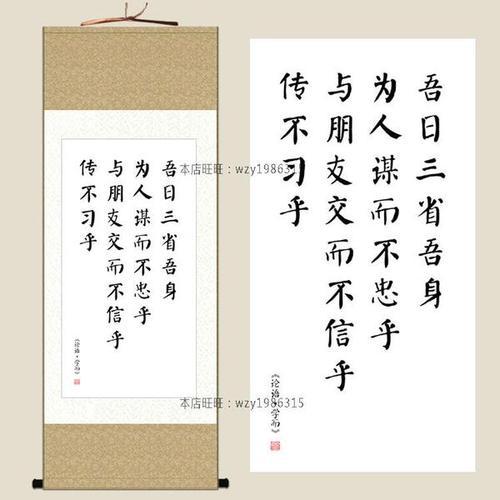 吾日三省吾身
为人谋而不忠乎
与朋友交而不信乎
传不习乎
《论语·学而》
吾日三省吾身
为人谋而不忠乎
与朋友交而不信乎
传不习乎
《论语·学而》
本店旺旺：wzy1986315
本店旺旺：wzy1986315